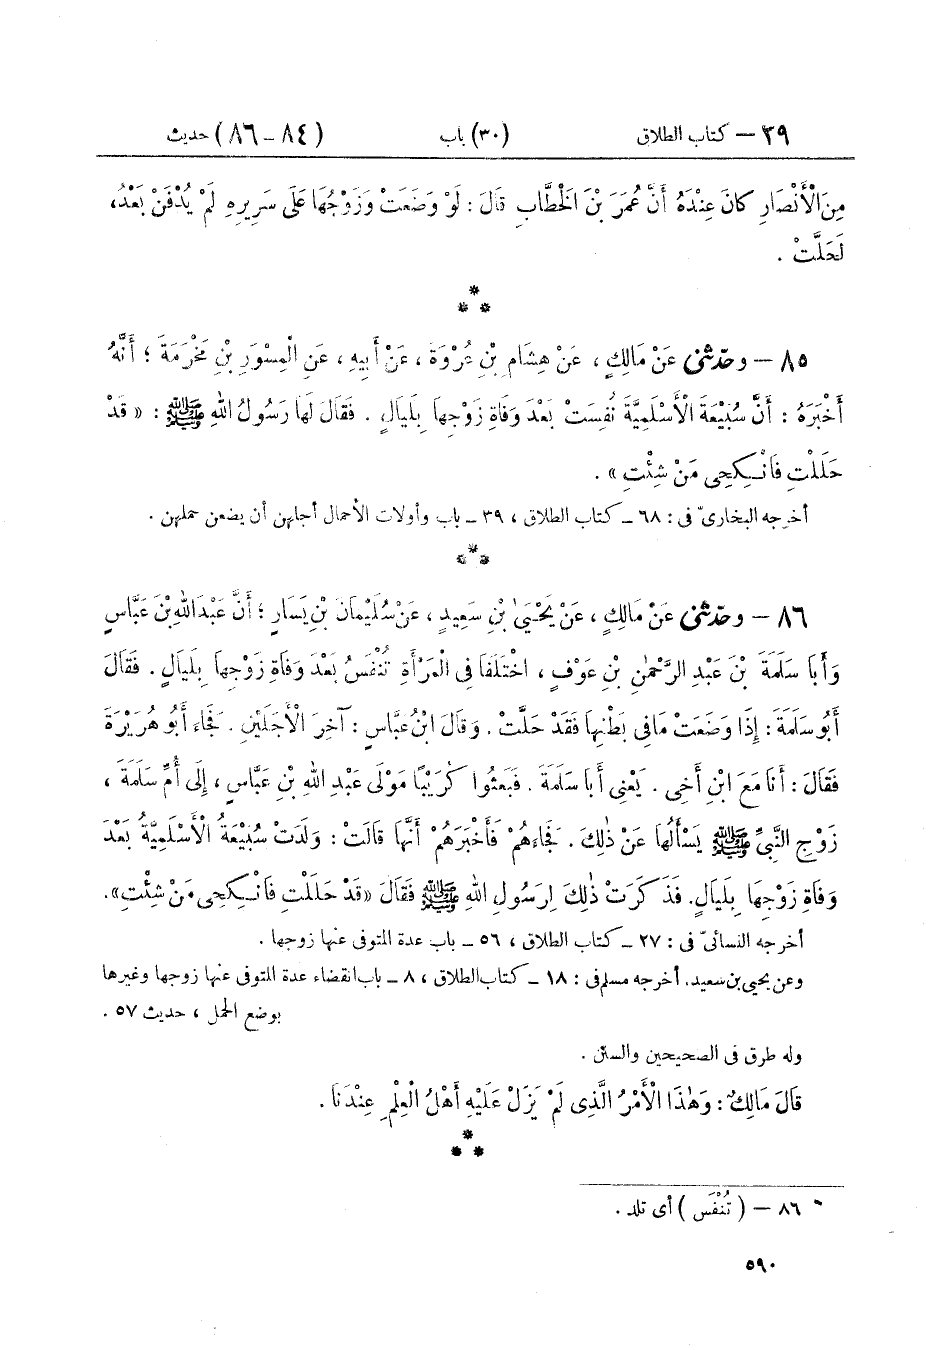 ٢٩ — كتاب الطلاق (٣٠) باب (٨٤ - ٨٦) حديث
مِنَ الْأَنْصَارِ كَانَ عِنْدَهُ أَنَّ عُمَرَ بْنَ الْخَطَّابِ قَالَ : لَوْ وَضَعَتْ وَزَوْجُهَا عَلَى سَرِيرِهِ لَمْ يُدْفَنْ بَعْدُ،
لَحَلَّتْ .
***
٨٥ — وحدّثنى عَنْ مَالِكٍ ، عَنْ هِشَامِ بْنِ عُرْوَةَ ، عَنْ أَبِيهِ ، عَنِ الْمِسْوَرِ بْنِ مَخْرَمَةَ ؛ أَنَّهُ
أَخْبَرَهُ : أَنَّ سُبَيْعَةَ الْأَسْلَمِيَّةَ نُفِسَتْ بَعْدَ وَفَاةِ زَوْجِهَا بِلَيَالٍ . فَقَالَ لَهَا رَسُولُ اللهِ ﷺ : « قَدْ
حَلَلْتِ فَانْكِحِى مَنْ شِئْتِ » .
أخرجه البخارىّ فى : ٦٨ ـ كتاب الطلاق ، ٣٩ ـ باب وأولات الأحمال أجلهن أن يضعن حملهن .
***
٨٦ — وحدّثنى عَنْ مَالِكٍ ، عَنْ يَحْيَىٰ بْنِ سَعِيدٍ ، عَنْ سُلَيْمَانَ بْنِ يَسَارٍ ؛ أَنَّ عَبْدَ اللهِ بْنَ عَبَّاسٍ
وَأَبَا سَلَمَةَ بْنَ عَبْدِ الرَّحْمٰنِ بْنِ عَوْفٍ ، اخْتَلَفَا فِى الْمَرْأَةِ تُنْفَسُ بَعْدَ وَفَاةِ زَوْجِهَا بِلَيَالٍ . فَقَالَ
أَبُو سَلَمَةَ : إِذَا وَضَعَتْ مَا فِى بَطْنِهَا فَقَدْ حَلَّتْ . وَقَالَ ابْنُ عَبَّاسٍ : آخِرَ الْأَجَلَيْنِ . فَجَاءَ أَبُو هُرَيْرَةَ
فَقَالَ : أَنَا مَعَ ابْنِ أَخِى . يَعْنِى أَبَا سَلَمَةَ . فَبَعَثُوا كُرَيْبًا مَوْلَى عَبْدِ اللهِ بْنِ عَبَّاسٍ ، إِلَى أُمِّ سَلَمَةَ ،
زَوْجِ النَّبِىِّ ﷺ يَسْأَلُهَا عَنْ ذٰلِكَ . فَجَاءَهُمْ فَأَخْبَرَهُمْ أَنَّهَا قَالَتْ : وَلَدَتْ سُبَيْعَةُ الْأَسْلَمِيَّةُ بَعْدَ
وَفَاةِ زَوْجِهَا بِلَيَالٍ. فَذَكَرَتْ ذٰلِكَ لِرَسُولِ اللهِ ﷺ فَقَالَ « قَدْ حَلَلْتِ فَانْكِحِى مَنْ شِئْتِ ».
أخرجه النسائىّ فى : ٢٧ ـ كتاب الطلاق ، ٥٦ ـ باب عدة المتوفى عنها زوجها .
وعن يحيى بن سعيد. أخرجه مسلم فى : ١٨ ـ كتاب الطلاق ، ٨ ـ باب انقضاء عدة المتوفى عنها زوجها وغيرها
بوضع الحمل ، حديث ٥٧ .
وله طرق فى الصحيحين والسنن .
قَالَ مَالِكٌ : وَهٰذَا الْأَمْرُ الَّذِى لَمْ يَزَلْ عَلَيْهِ أَهْلُ الْعِلْمِ عِنْدَنَا .
***
٨٦ — ( تُنْفَس ) أى تلد .
٥٩٠